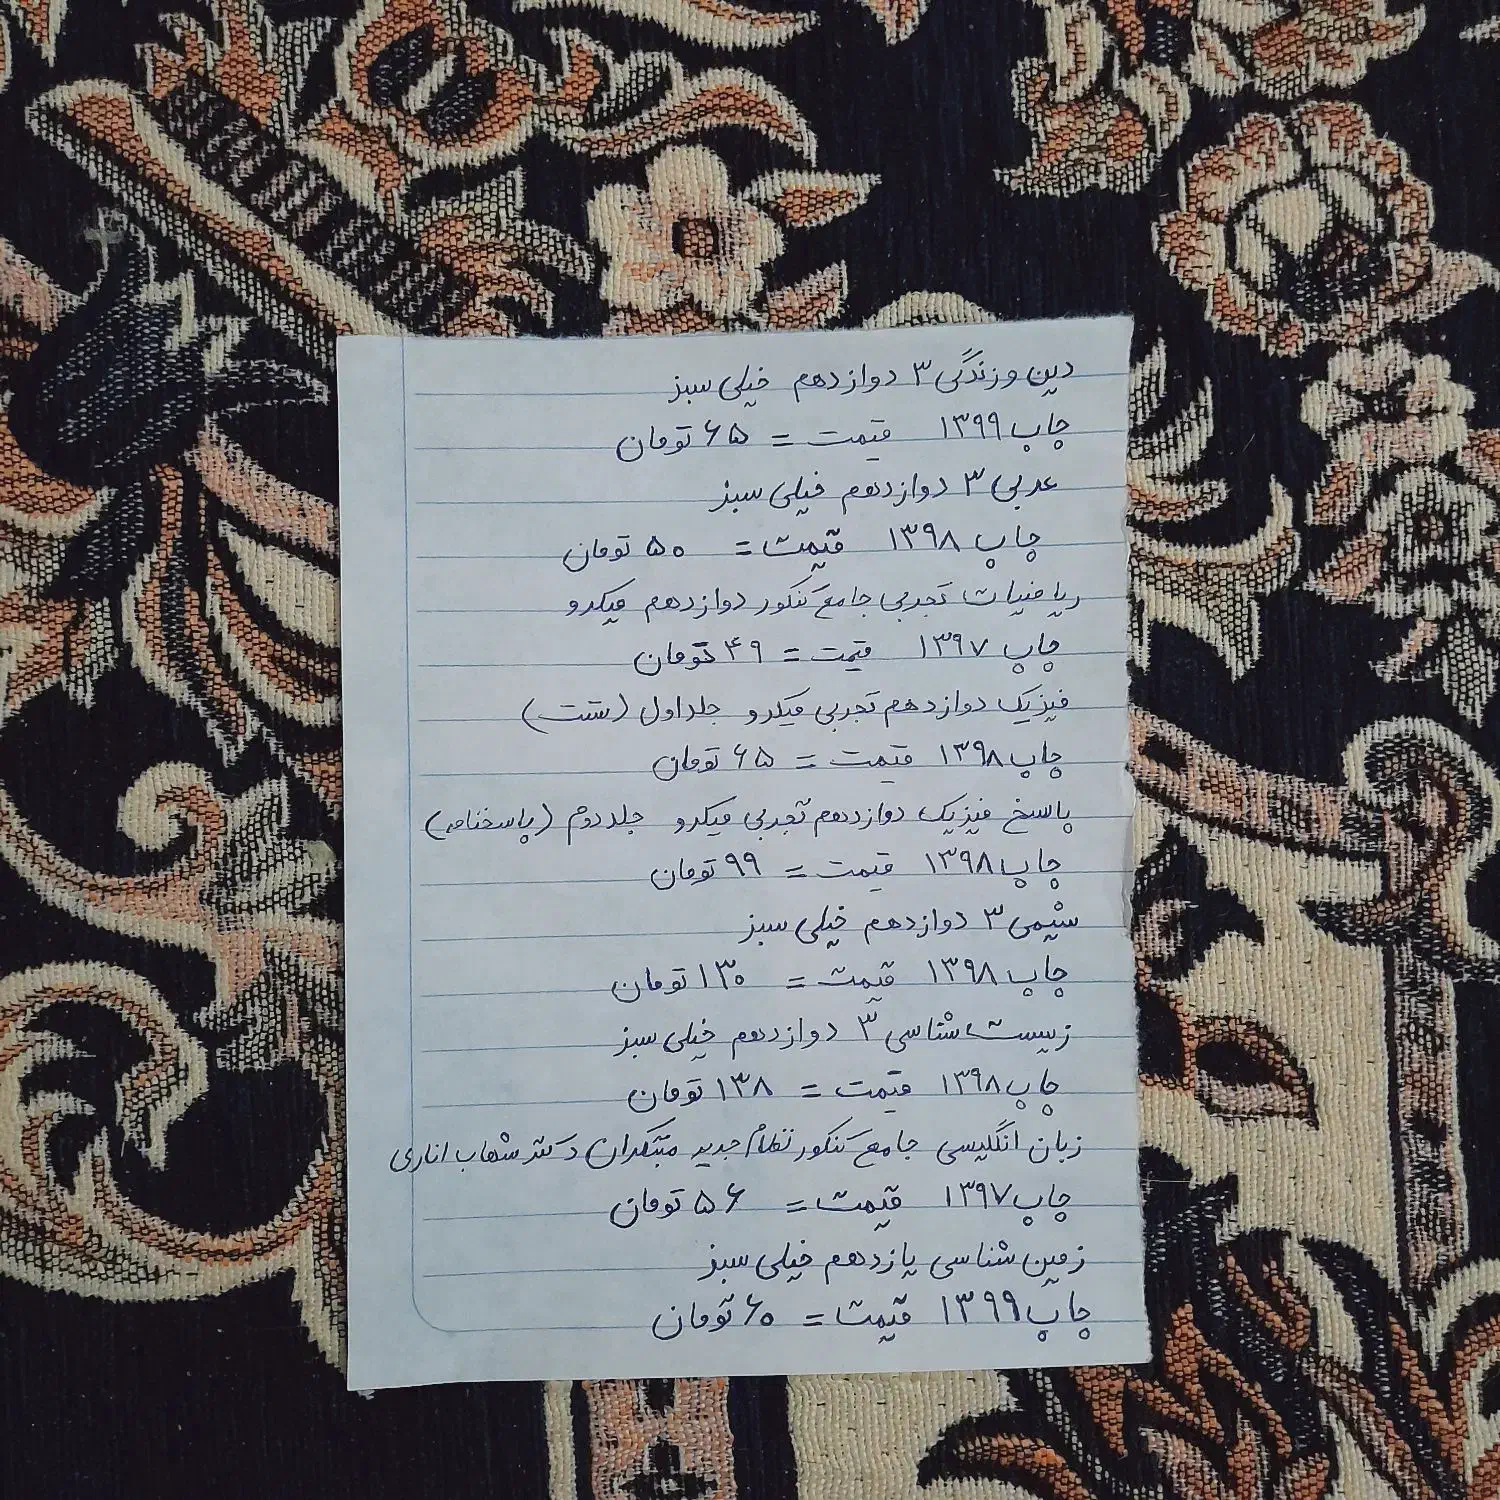 دین و زندگی ۳ دوازدهم خیلی سبز
چاپ ۱۳۹۹ قیمت = ۶۵ تومان
عربی ۳ دوازدهم خیلی سبز
چاپ ۱۳۹۸ قیمت = ۵۰ تومان
ریاضیات تجربی جامع کنکور دوازدهم میکرو
چاپ ۱۳۹۷ قیمت = ۴۹ تومان
فیزیک دوازدهم تجربی میکرو جلد اول (تست)
چاپ ۱۳۹۸ قیمت = ۶۵ تومان
پاسخ فیزیک دوازدهم تجربی میکرو جلد دوم (پاسخنامه)
چاپ ۱۳۹۸ قیمت = ۹۹ تومان
شیمی ۳ دوازدهم خیلی سبز
چاپ ۱۳۹۸ قیمت = ۱۳۰ تومان
زیست شناسی ۳ دوازدهم خیلی سبز
چاپ ۱۳۹۸ قیمت = ۱۳۸ تومان
زبان انگلیسی جامع کنکور نظام جدید مبتکران دکتر شهاب اناری
چاپ ۱۳۹۷ قیمت = ۵۶ تومان
زمین شناسی یازدهم خیلی سبز
چاپ ۱۳۹۹ قیمت = ۶۰ تومان